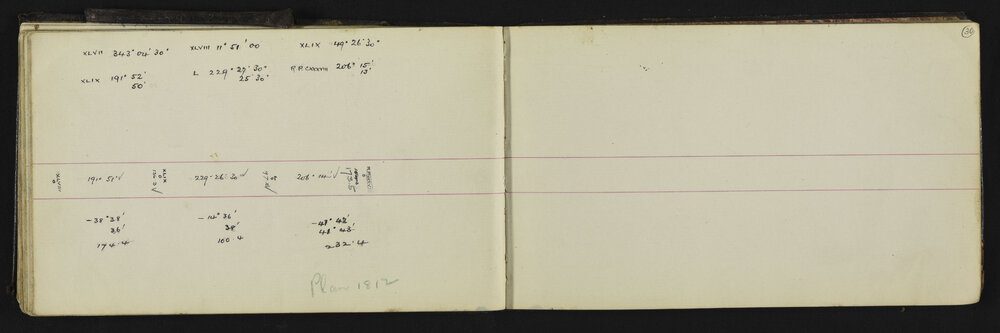 36
XLVII 343° 04' 30" XLVIII 11° 51' 00 XLIX 49° 26' 30"
XLIX 191° 52' L 229° 27' 30" 208° 15'
50' 25' 30" 13'
191° 51' 229° 26' 30" 208°
-38° 38' -14° 36' -48° 42'
36' 38' 48° 43'
174.4 100.4 232.4
Plan 1812